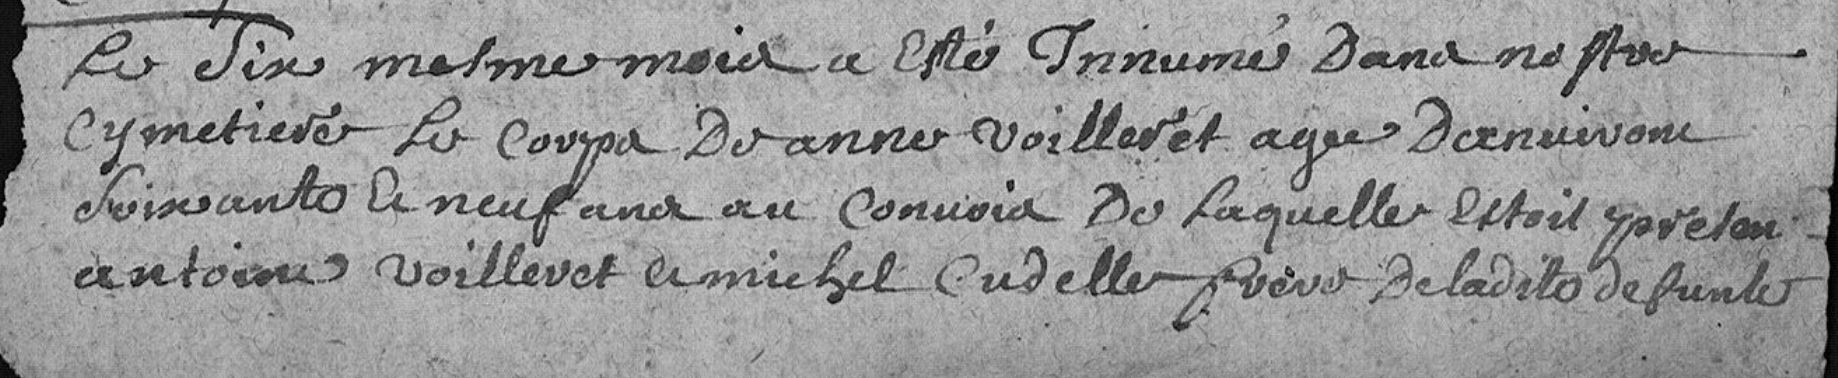 Le Six mesme mois a Esté Innumé Dans nostre
Cymetiere Le Corps De anne Voilleret agee Danuiron
Soixante Et neuf ans au Convois De Laquelle Estoit present
antoine Voilleret Et michel Cudelle frere De ladite defunte